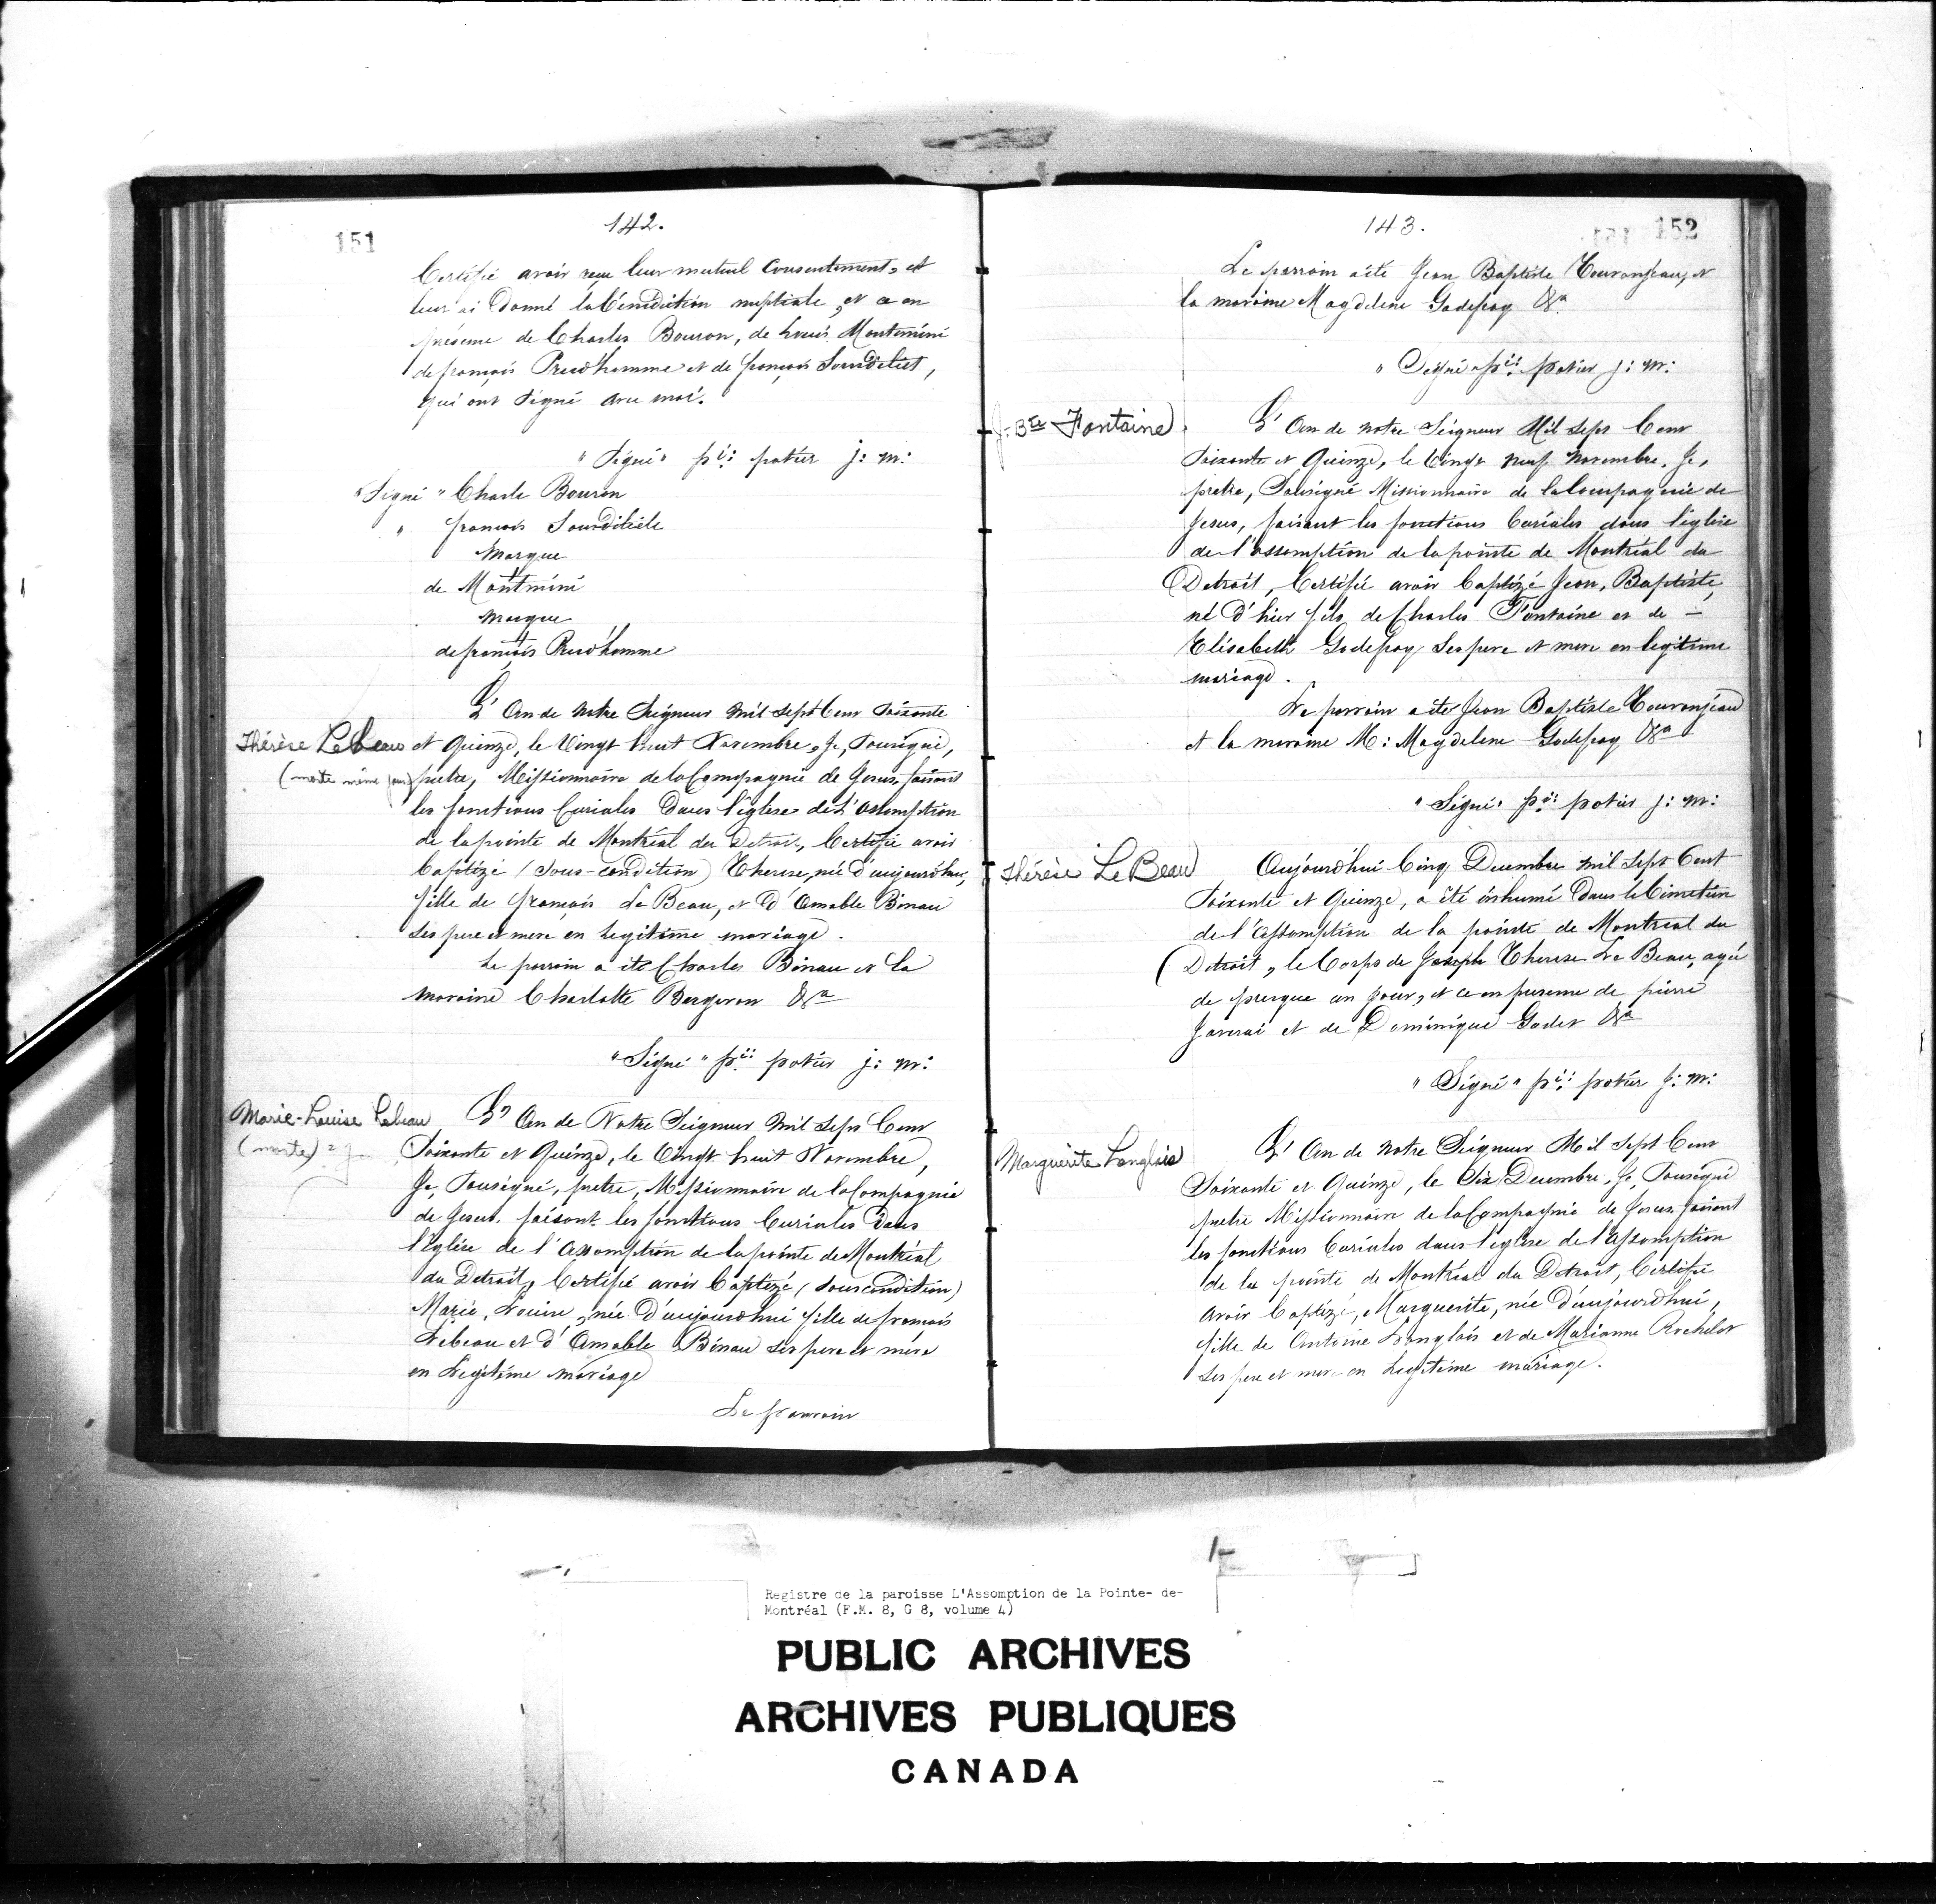 151
142.
Certifie avoir reçu leur mutuel consentement, et
leur ai donné la bénédiction nuptiale, et ce en
présence de Charles Bouron, de Louis Montmini
de françois Prud'homme et de françois
qui ont signé avec moi.
"Signé" p:ii: potier j: m:
"Signé" Charle Bouron
" françois
Marque
de Montmini
marque
de françois Prud'homme
L'An de Notre Seigneur mil sept Cent soixante
Thérèse LeBeau
(morte même jour)
et Quinze, le Vingt huit Novembre, Je, soussigné,
pretre, Missionnaire de la Compagnie de Jesus, faisant
les fonctions Curiales dans l'église de L'Assomption
de la pointe de Montréal du Detroit, Certifie avoir
baptizé (sous-condition) Therese, née d'aujourd'hui,
fille de françois Le Beau, et d'Amable Binau
ses pere et mere en legitime mariage.
Le parrain a été Charles Binau et la
maraine Charlotte Bergeron &a
"Signé" p:ii: potier j: m:
Marie-Louise Lebeau
(morte)
L'An de Notre Seigneur mil sept Cent
Soixante et Quinze, le Vingt huit Novembre,
Je, soussigné, pretre, Missionnaire de la Compagnie
de Jesus, faisant les fonctions Curiales dans
l'église de l'Assomption de la pointe de Montréal
du Detroit, Certifie avoir baptizé (sous condition)
Marie, Louise, née d'aujourdhui fille de françois
Lebeau et d'Amable Binau ses pere et mère
en Legitime mariage
Le parrain
143.
152
Le parrain a été Jean Baptiste Touronjeau, et
la maraine Magdelene Godefroy &a
"Signé p:ii: potier j: m:
J. Bte Fontaine
L'An de notre Seigneur Mil Sept Cent
Soixante et Quinze, le Vingt neuf novembre, Je,
pretre, Soussigné Missionnaire de la Compagnie de
Jesus, faisant les fonctions Curiales dans l'église
de l'assomption de la pointe de Montréal du
Detroit, Certifie avoir baptizé Jean, Baptiste,
né d'hier fils de Charles Fontaine et de –
Elisabeth Godefroy ses pere et mere en legitime
mariage.
Le parrain a été Jean Baptiste Touronjeau
et la maraine M: Magdelene Godefroy &a
"Signé" p:ii: potier j: m:
Thérèse LeBeau
Aujourd'hui Cinq Decembre mil sept Cent
Soixante et Quinze, a été inhumé dans le Cimetière
de l'Assomption de la pointe de Montreal du
Detroit, le Corps de Joseph Therese Le Beau, agé
de presque un jour, et ce en presence de pierre
Javerai et de Dominique Godet &a
"Signé" p:ii: potier j: m:
Marguerite Langlois
L'An de notre Seigneur Mil Sept Cent
Soixante et Quinze, le Dix Decembre, Je, Soussigné
pretre Missionnaire de la Compagnie de Jesus, faisant
les fonctions Curiales dans l'église de l'Assomption
de la pointe de Montréal du Detroit, Certifie
avoir baptizé, Marguerite, née d'aujourd'hui,
fille de Antoine Langlois et de Marianne Rochelot
ses pere et mere en Legitime mariage.
Registre de la paroisse L'Assomption de la Pointe- de-
Montréal (F.M. 8, G 8, volume 4)
PUBLIC ARCHIVES
ARCHIVES PUBLIQUES
CANADA